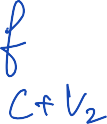 f
C + V₂